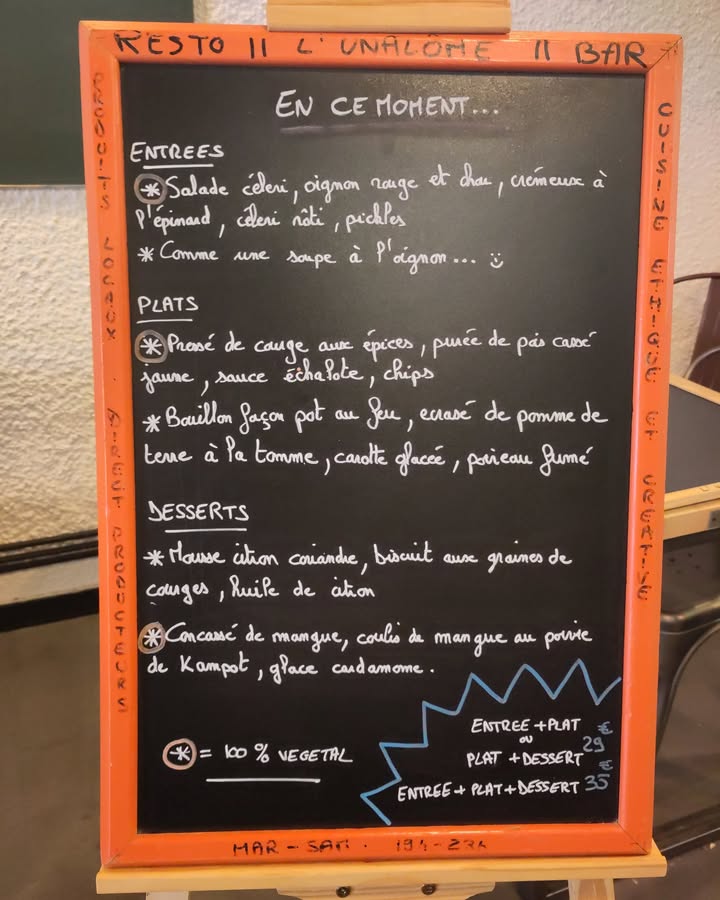 RESTO || L'UNALÔME || BAR
PRODUITS LOCAUX . DIRECT PRODUCTEURS
CUISINE ETHIQUE ET CREATIVE
EN CE MOMENT...
ENTREES
* Salade céleri, oignon rouge et chou, crémeux à
l'épinard, céleri rôti, pickles
* Comme une soupe à l'oignon... :)
PLATS
* Pressé de courge aux épices, purée de pois cassé
jaune, sauce échalote, chips
* Bouillon façon pot au feu, ecrasé de pomme de
terre à la tomme, carotte glacée, poireau fumé
DESSERTS
* Mousse citron coriandre, biscuit aux graines de
courges, huile de citron
* Concassé de mangue, coulis de mangue au poivre
de Kampot, glace cardamome.
* = 100 % VEGETAL
ENTREE + PLAT
ou
PLAT + DESSERT
29 €
ENTREE + PLAT + DESSERT 35 €
MAR - SAM . 19h - 23h